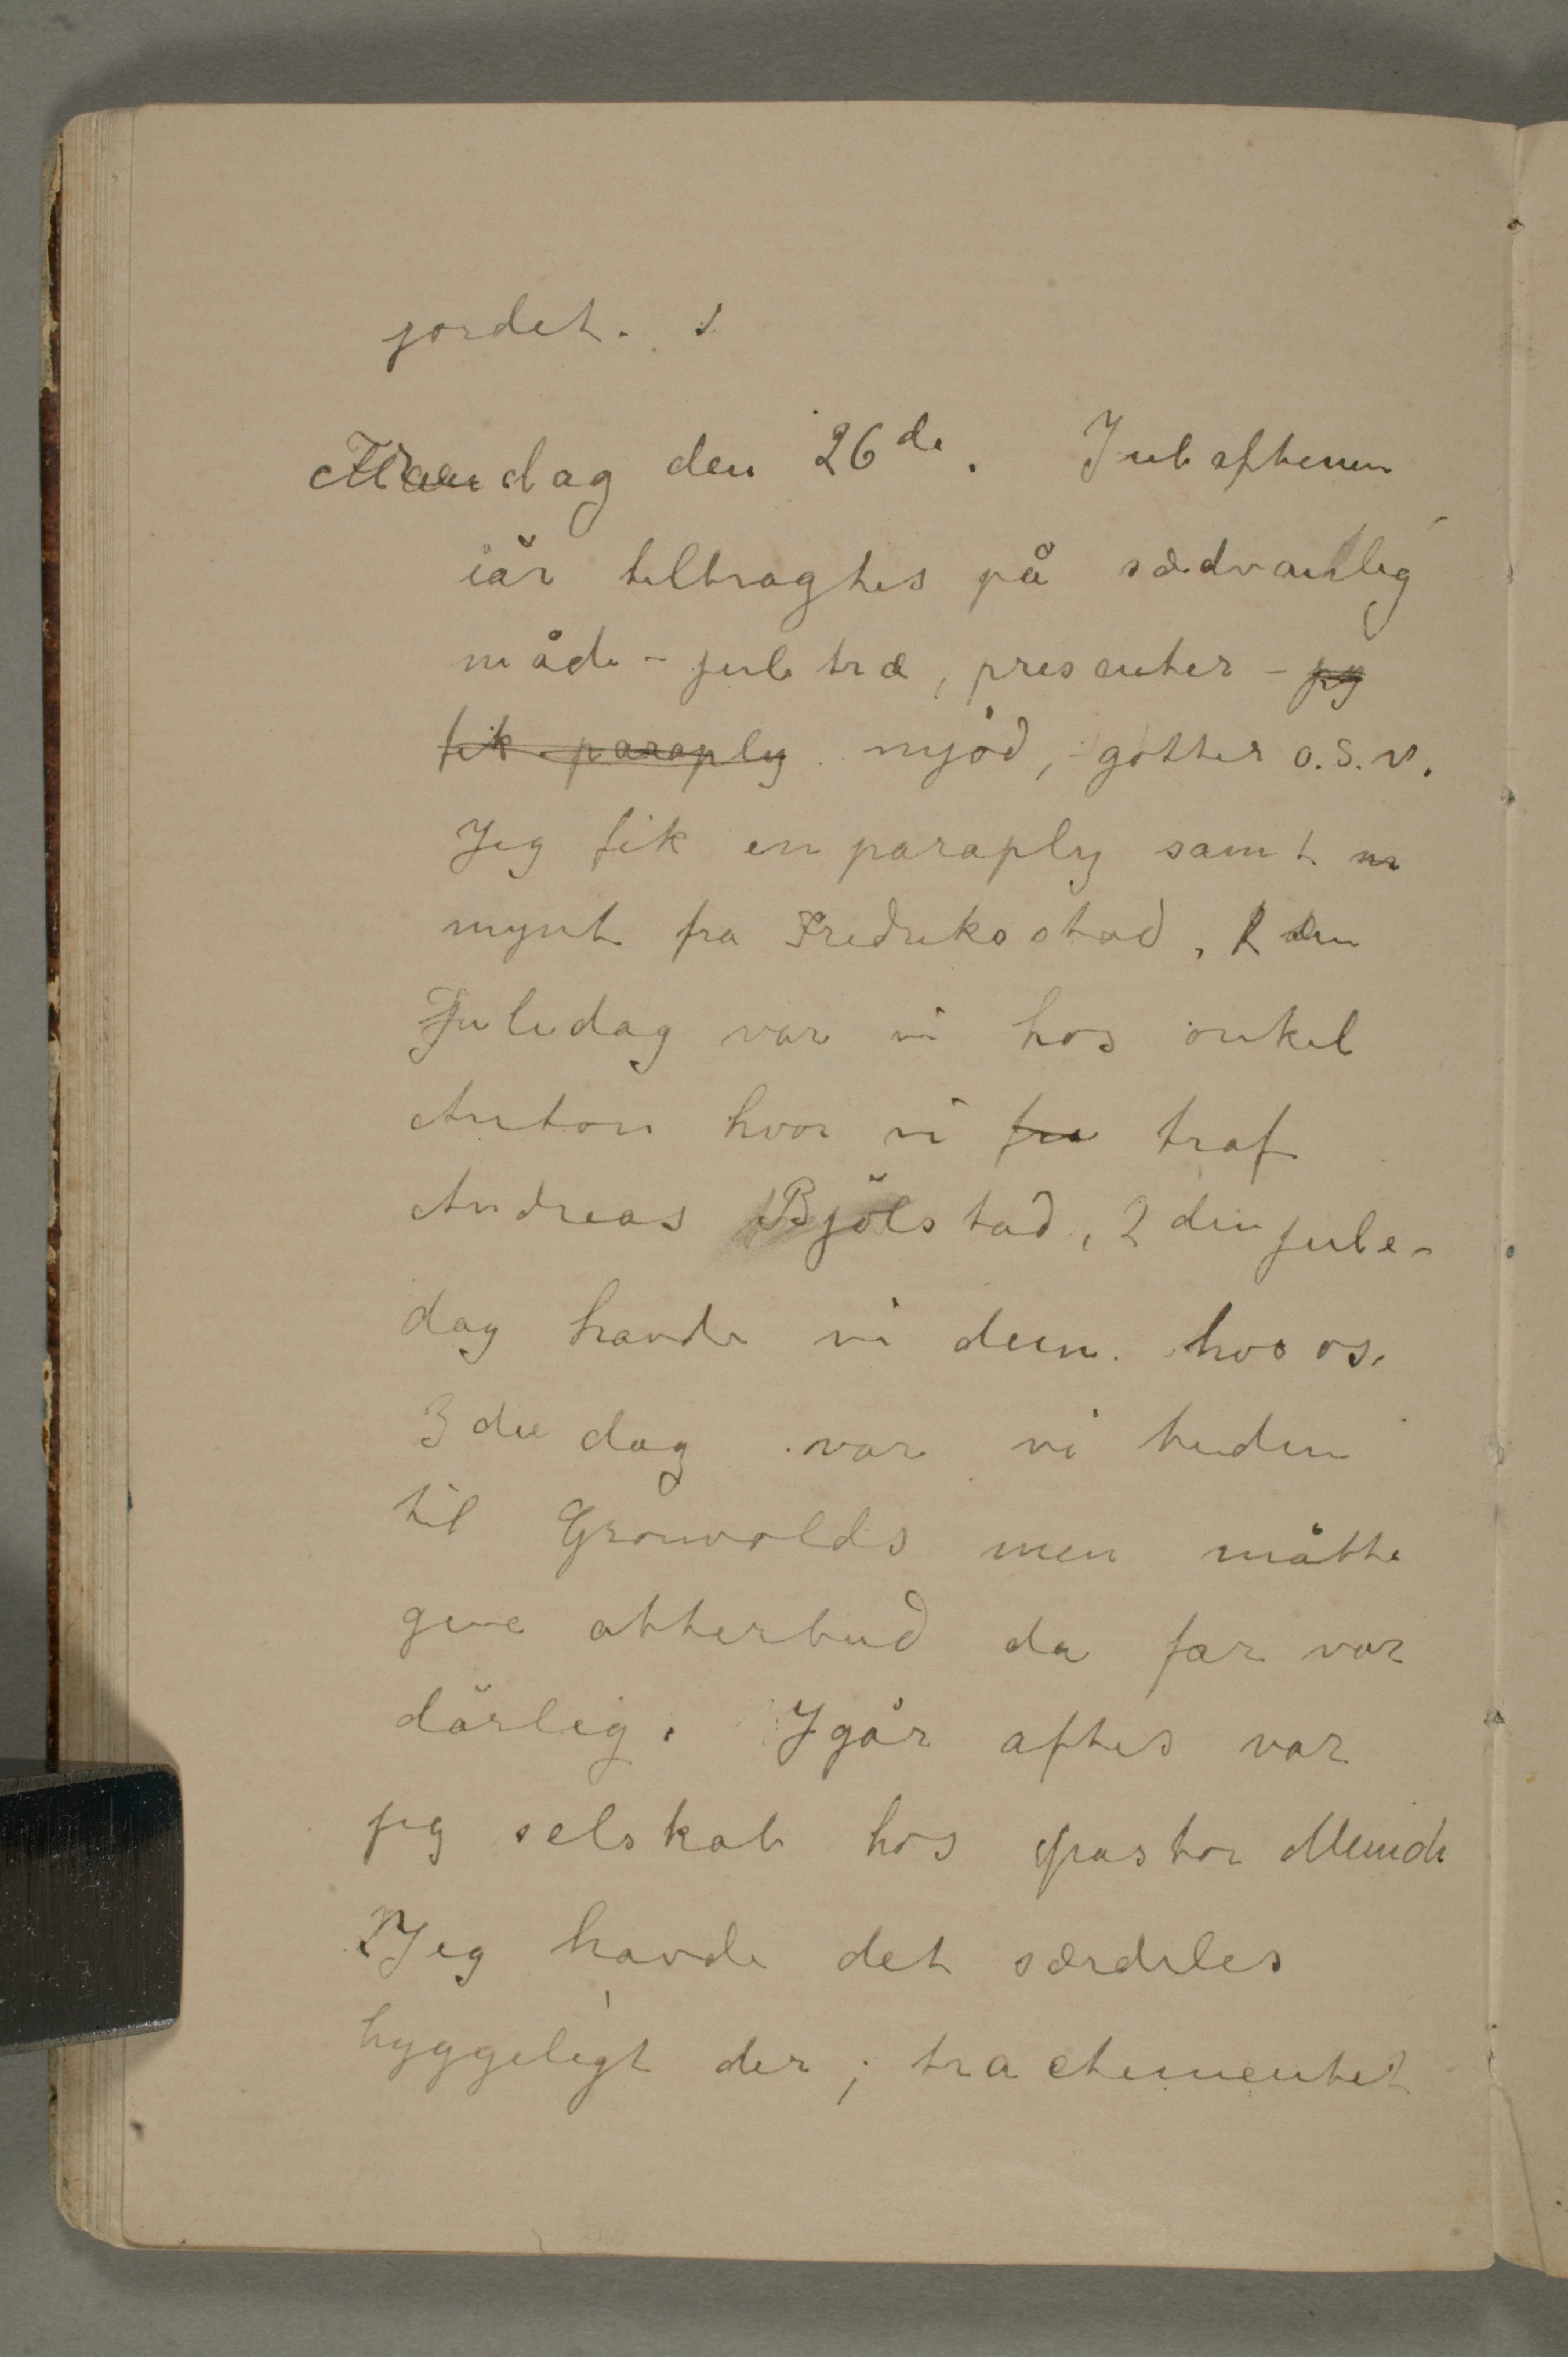 jordet.
Mandag den 26de. Juleaftenen
iår tilbragtes på sædvanlig
måde – juletræ, presenter – jeg
fik paraply mjød, – gotter o.s.v.
Jeg fik en paraply samt m
mynt fra Fredriksstad, 1 den
Juledag var vi hos onkel
Anton hvor vi fra traf
Andreas Bjölstad, 2 den jule-
dag havde vi dem hos os.
3 die dag var vi buden
til Grønvolds men måtte
give atterbud da far var
dårlig. Igår aftes var
jeg selskab hos pastor Munch
Jeg havde det særdeles
hyggeligt der; tractementet